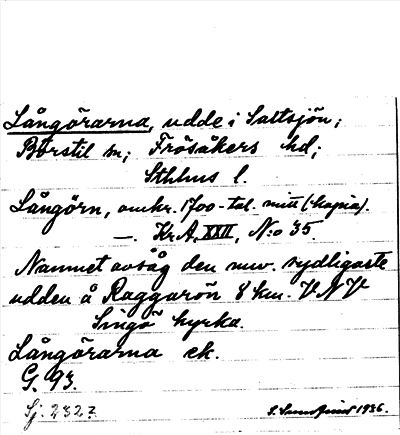 Långörarna, udde i Saltsjön;
Börstil sn; Frösåkers hd;
Sthlms l.
Långörn, omkr. 1700-tal. mitt (kopia).
—. Kr.A. XXII, N:o 35.
Namnet avsåg den nuv. sydligaste
udden å Raggarön 8 km. V N V
Singö kyrka.
Långörarna ek.
G. 93.
Sj. 2323
1936.